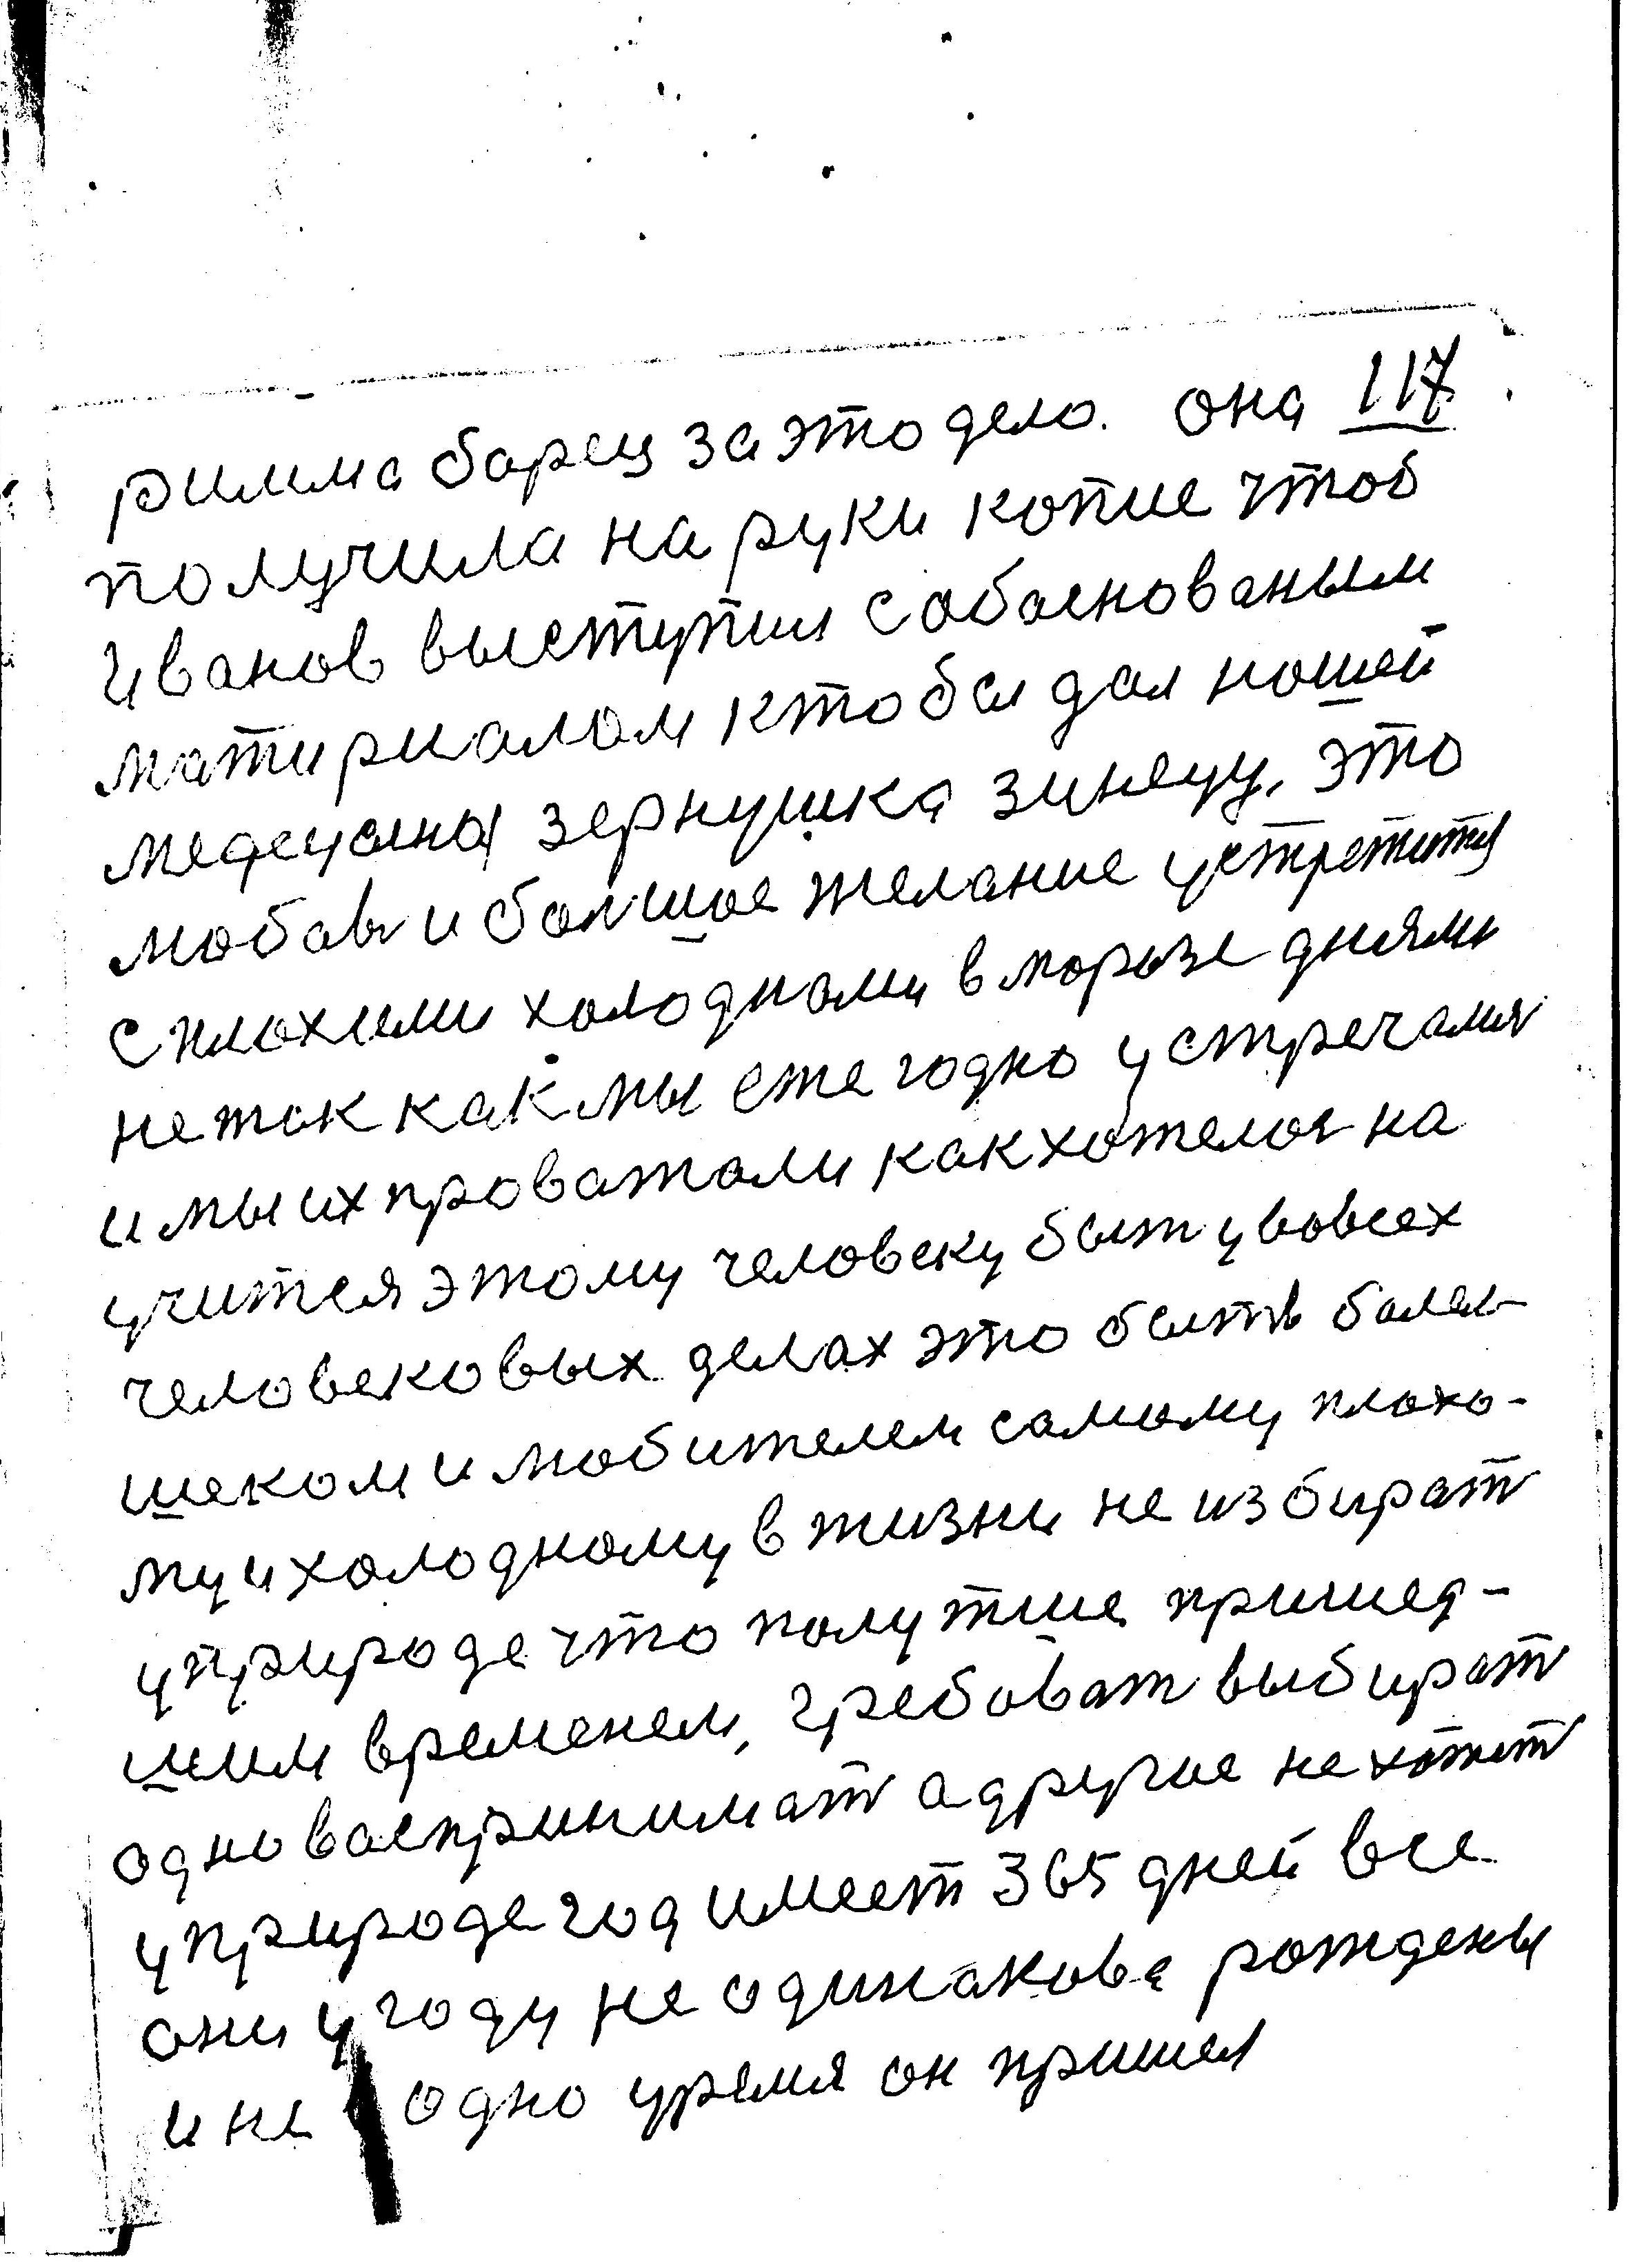 римма борец за это дело. она 117
получила на руки копие чтоб
Иванов выступил с обоснованым
матириалом ктобы дал нашей
медецына зернушка зинецу, это
любовь и большое желание устретитя
с плохими холоднами в морозе днями
не так как мы ежегодно устречалися
и мы их проважали как хотелося на
учится этому человеку быть у вовсех
человековых делах это быть болел-
шеком и любителем самому плохо-
му и холодному в жизни не избирать
у природе что полутше пришед-
шим временем, требовать выбирать
одно воспринимать а другие не хотеть
у природе год имеет 365 дней все
они у году не одинакова рождены
и не одно уремя он пришел